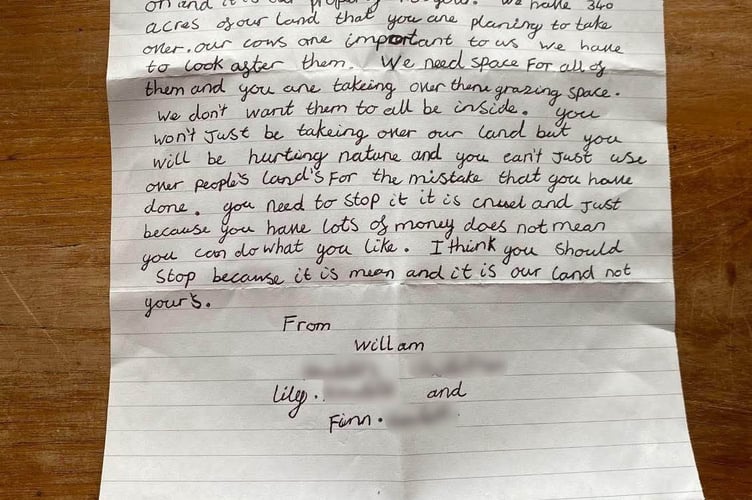 on and it is our property not yours. We have 340
acres of our land that you are planing to take
over. our cows are important to us we have
to look after them. We need space For all of
them and you are takeing over there grazing space.
we don't want them to all be inside. you
won't just be takeing over our land but you
will be hurting nature and you can't just use
over people's land's For the mistake that you have
done. you need to stop it it is cruel and just
because you have lots of money does not mean
you can do what you like. I think you should
stop because it is mean and it is our land not
your's.
From
Will am
Lily.
and
Finn.